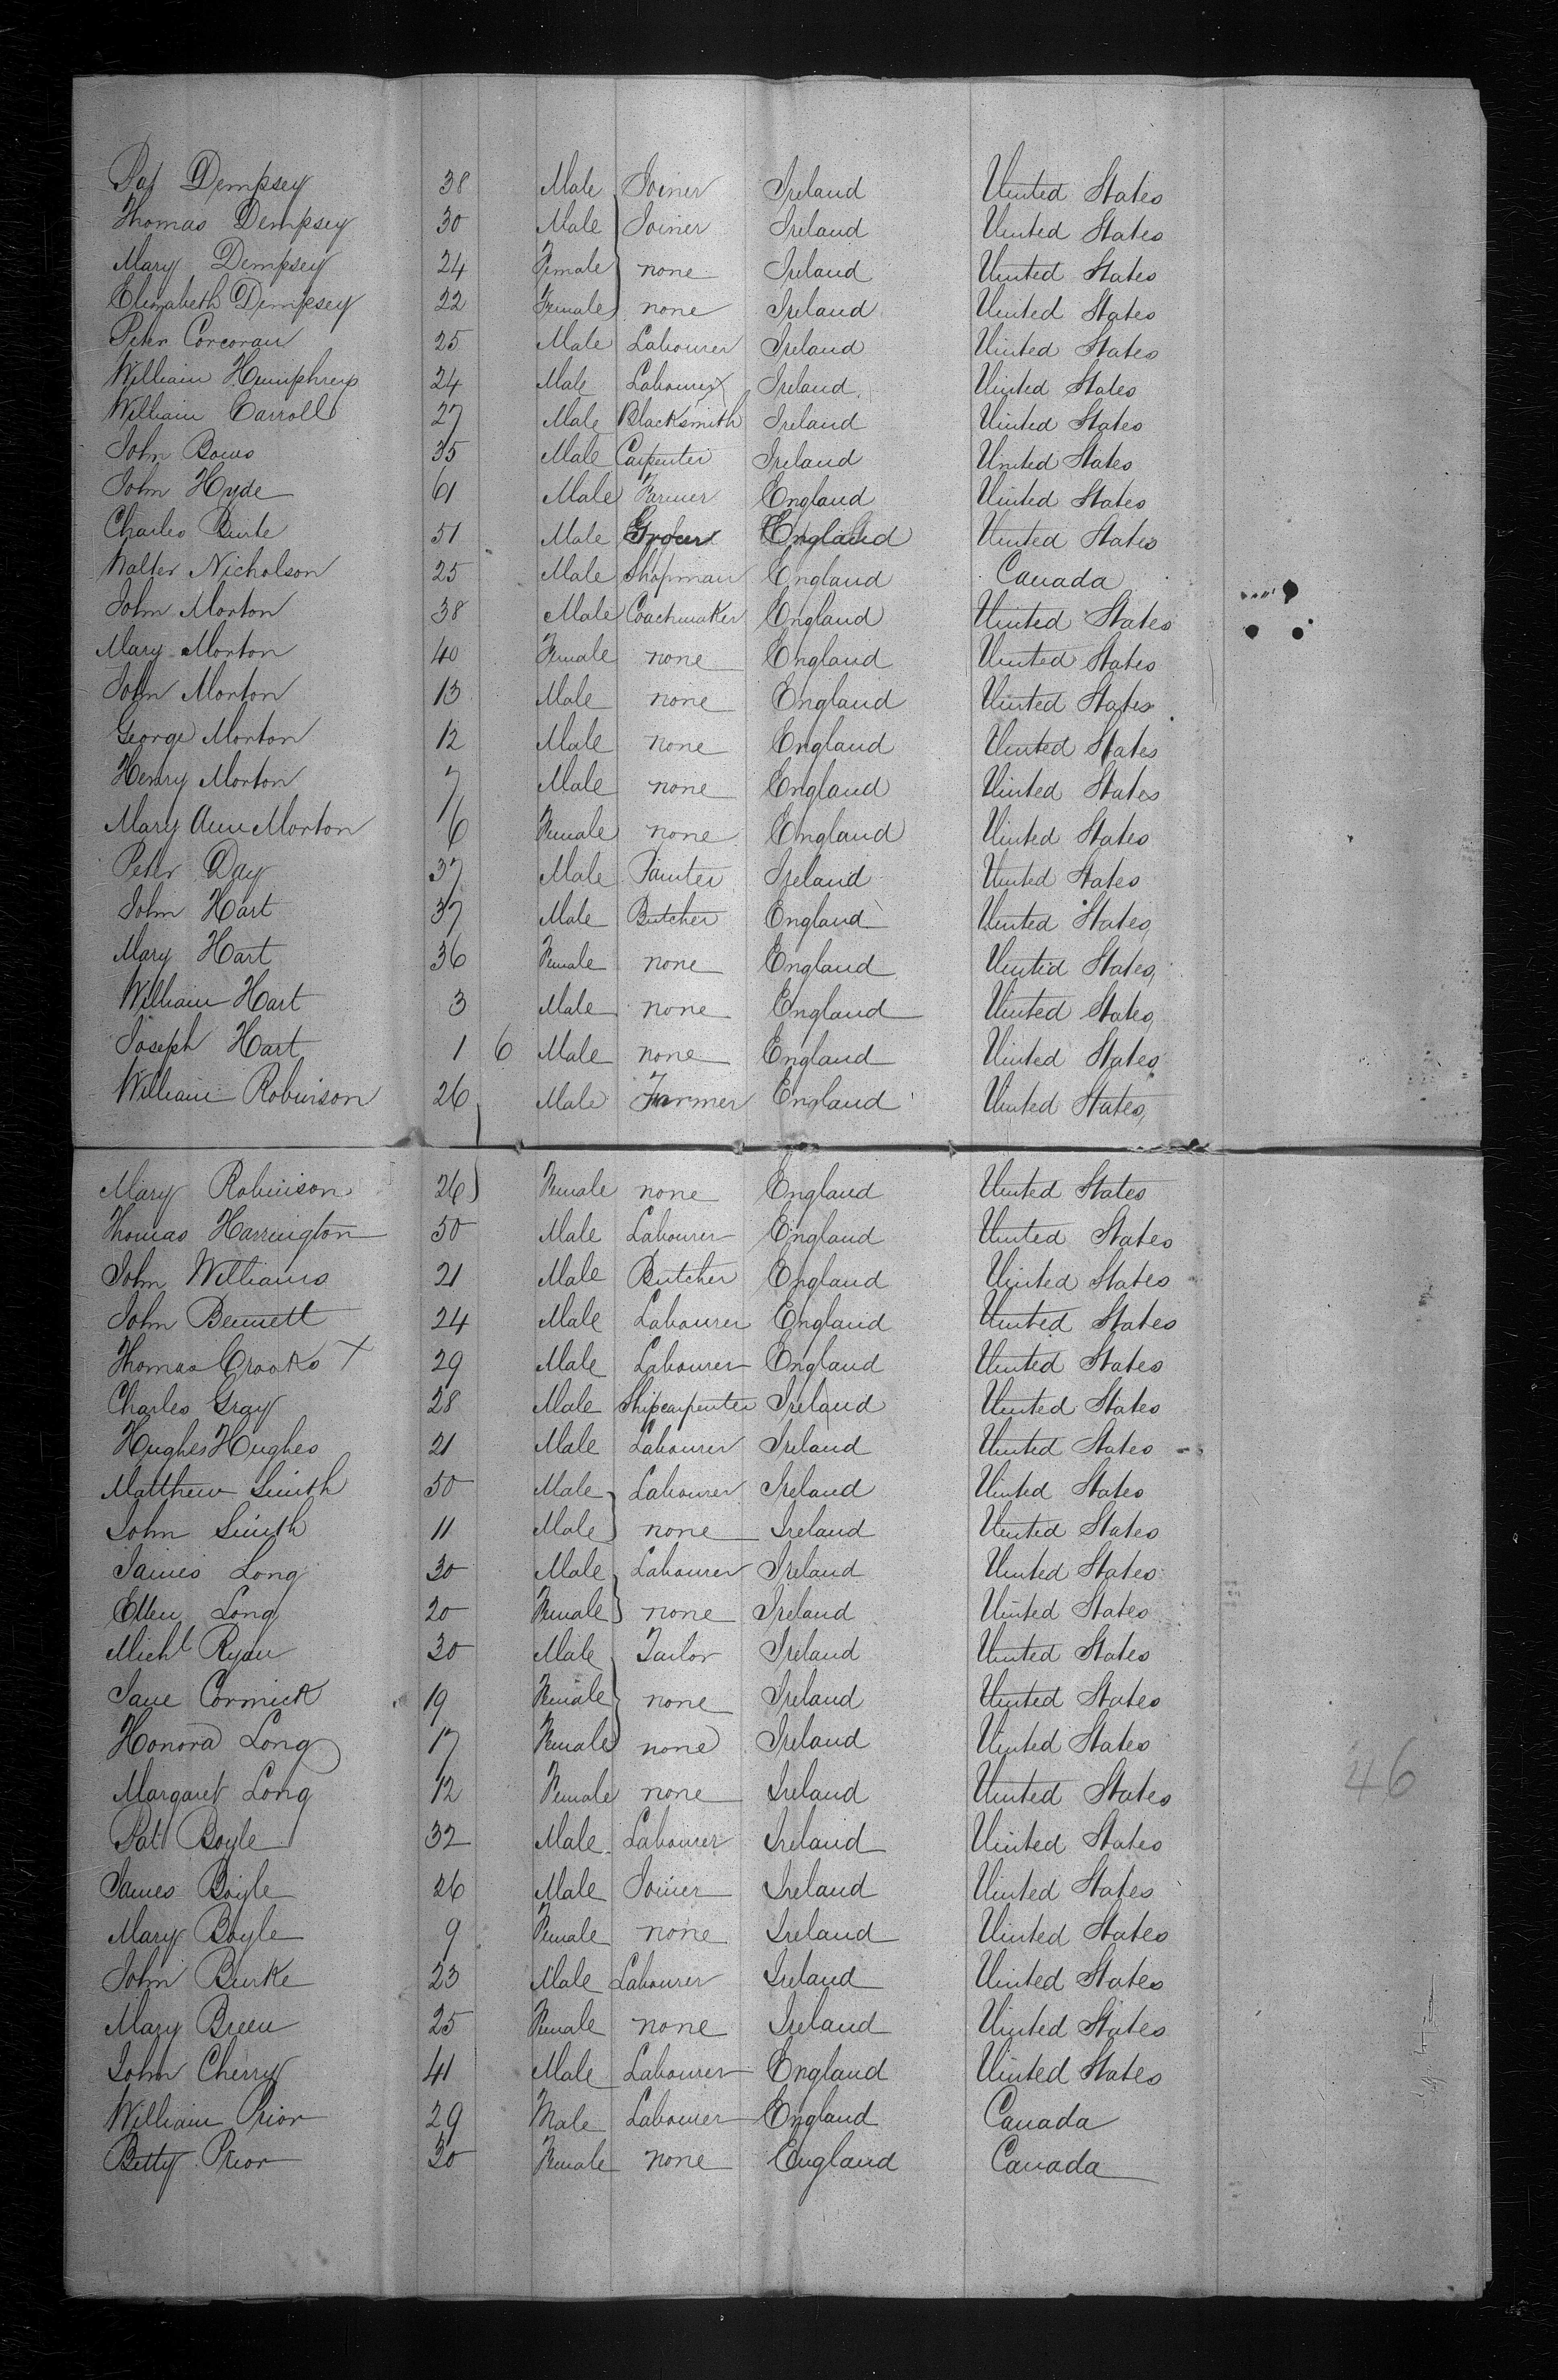 Pat Dempsey 38 Male Joiner Ireland United States
Thomas Dempsey 30 Male Joiner Ireland United States
Mary Dempsey 24 Female none Ireland United States
Elizabeth Dempsey 22 Female none Ireland United States
Peter Corcoran 25 Male Labourer Ireland United States
William Humphreys 24 Male Labourer Ireland United States
William Carroll 27 Male Blacksmith Ireland United States
John 35 Male Carpenter Ireland United States
John Hyde 61 Male Farmer England United States
Charles 51 Male Grocer England United States
Walter Nicholson 25 Male Shopman England Canada
John Morton 38 Male Coachmaker England United States
Mary Morton 40 Female none England United States
John Morton 13 Male none England United States
George Morton 12 Male none England United States
Henry Morton 7 Male none England United States
Mary Ann Morton 6 Female none England United States
Peter Day 37 Male Painter Ireland United States
John Hart 37 Male Butcher England United States
Mary Hart 36 Female none England United States
William Hart 3 Male none England United States
Joseph Hart 1 6 Male none England United States
William Robinson 26 Male Farmer England United States
Mary Robinson 26 Female none England United States
Thomas Harrington 50 Male Labourer England United States
John Williams 21 Male Butcher England United States
John Bennett 24 Male Labourer England United States
Thomas Crooks X 29 Male Labourer England United States
Charles Gray 28 Male Shipcarpenter Ireland United States
Hughes Hughes 21 Male Labourer Ireland United States
Matthew Smith 50 Male Labourer Ireland United States
John Smith 11 Male none Ireland United States
James Long 30 Male Labourer Ireland United States
Ellen Long 20 Female none Ireland United States
Michl Ryan 30 Male Tailor Ireland United States
Jane Cormick 19 Female none Ireland United States
Honora Long 17 Female none Ireland United States
Margaret Long 12 Female none Ireland United States
46
Patt Boyle 32 Male Labourer Ireland United States
James Boyle 26 Male Joiner Ireland United States
Mary Boyle 9 Female none Ireland United States
John Burke 23 Male Labourer Ireland United States
Mary Breen 25 Female none Ireland United States
John Cherry 41 Male Labourer England United States
William Prior 29 Male Labourer England Canada
Betty Prior 30 Female none England Canada